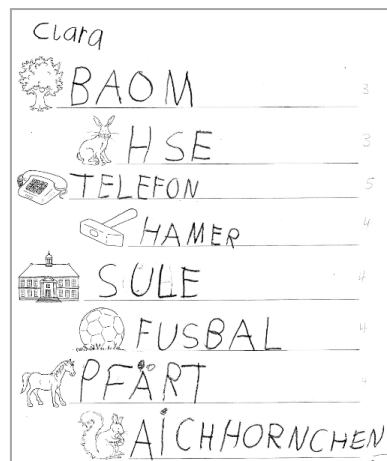 Clara
BAOM 3
HSE 3
TELEFON 5
HAMER 4
SULE 4
FUSBAL 4
PFÄRT 4
AiCHHORNCHEN